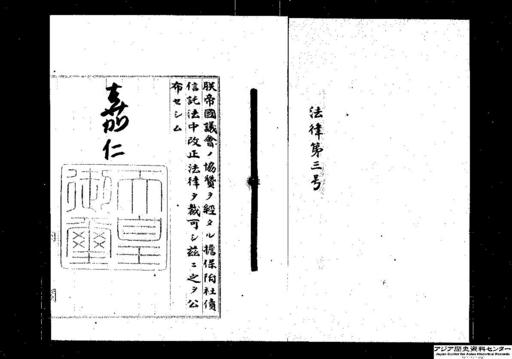 法律第三号
朕帝國議會ノ協賛ヲ經タル擔保附社債
信託法中改正法律ヲ裁可シ茲ニ之ヲ公
布セシム
嘉仁
天皇
御璽
アジア歴史資料センター
Japan Center for Asian Historical Records